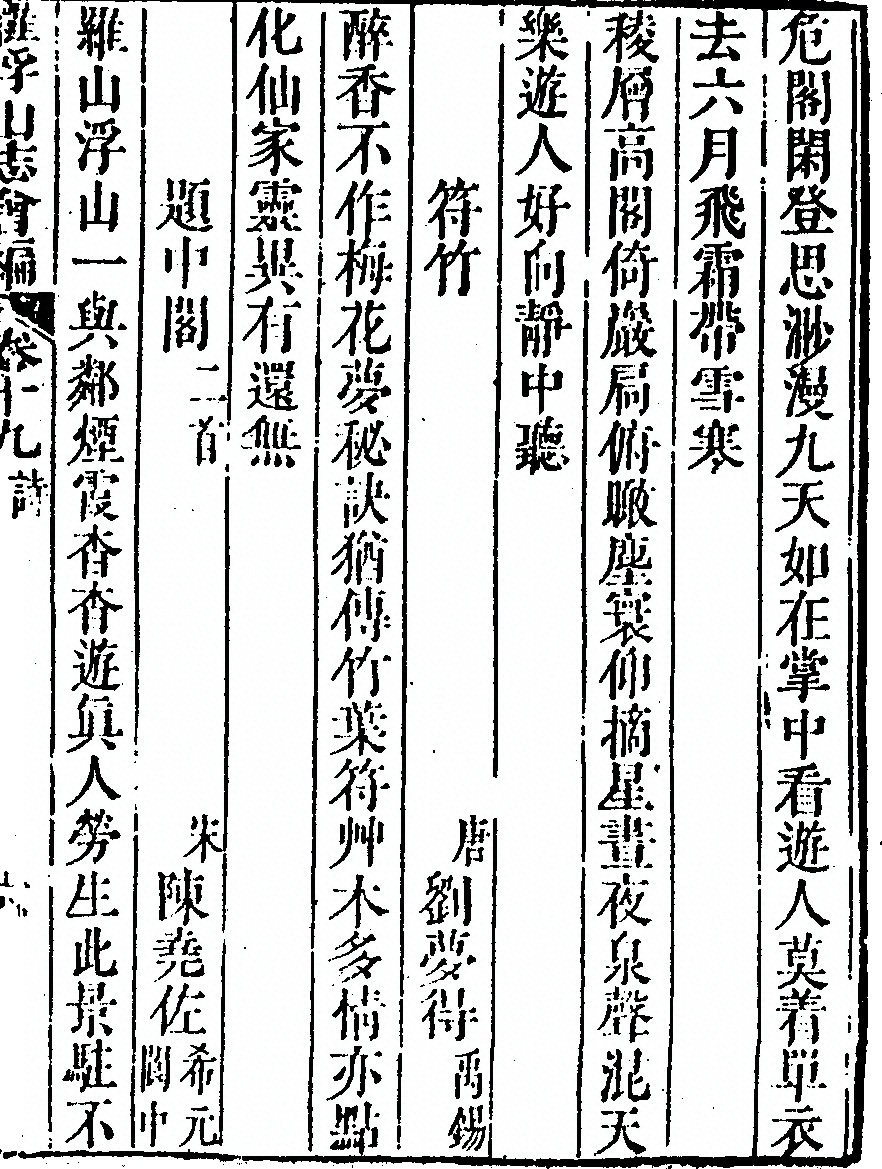 危閣閑登思渺漫九天如在掌中看遊人莫着単衣
去六月飛霜帶雪寒
稜層高閣倚巖扃俯瞰塵寰仰摘星晝夜泉聲混天
樂遊人好向靜中聽
符竹 唐劉夢得禹錫
醉香不作梅花夢秘訣猶傳竹葉符艸木多情亦點
化仙家靈異有還無
題中閣二首 宋陳堯佐希元閬中
羅山浮山一與鄰煙霞杳杳遊眞人勞生此景駐不
羅浮山志會編 卷十九 詩